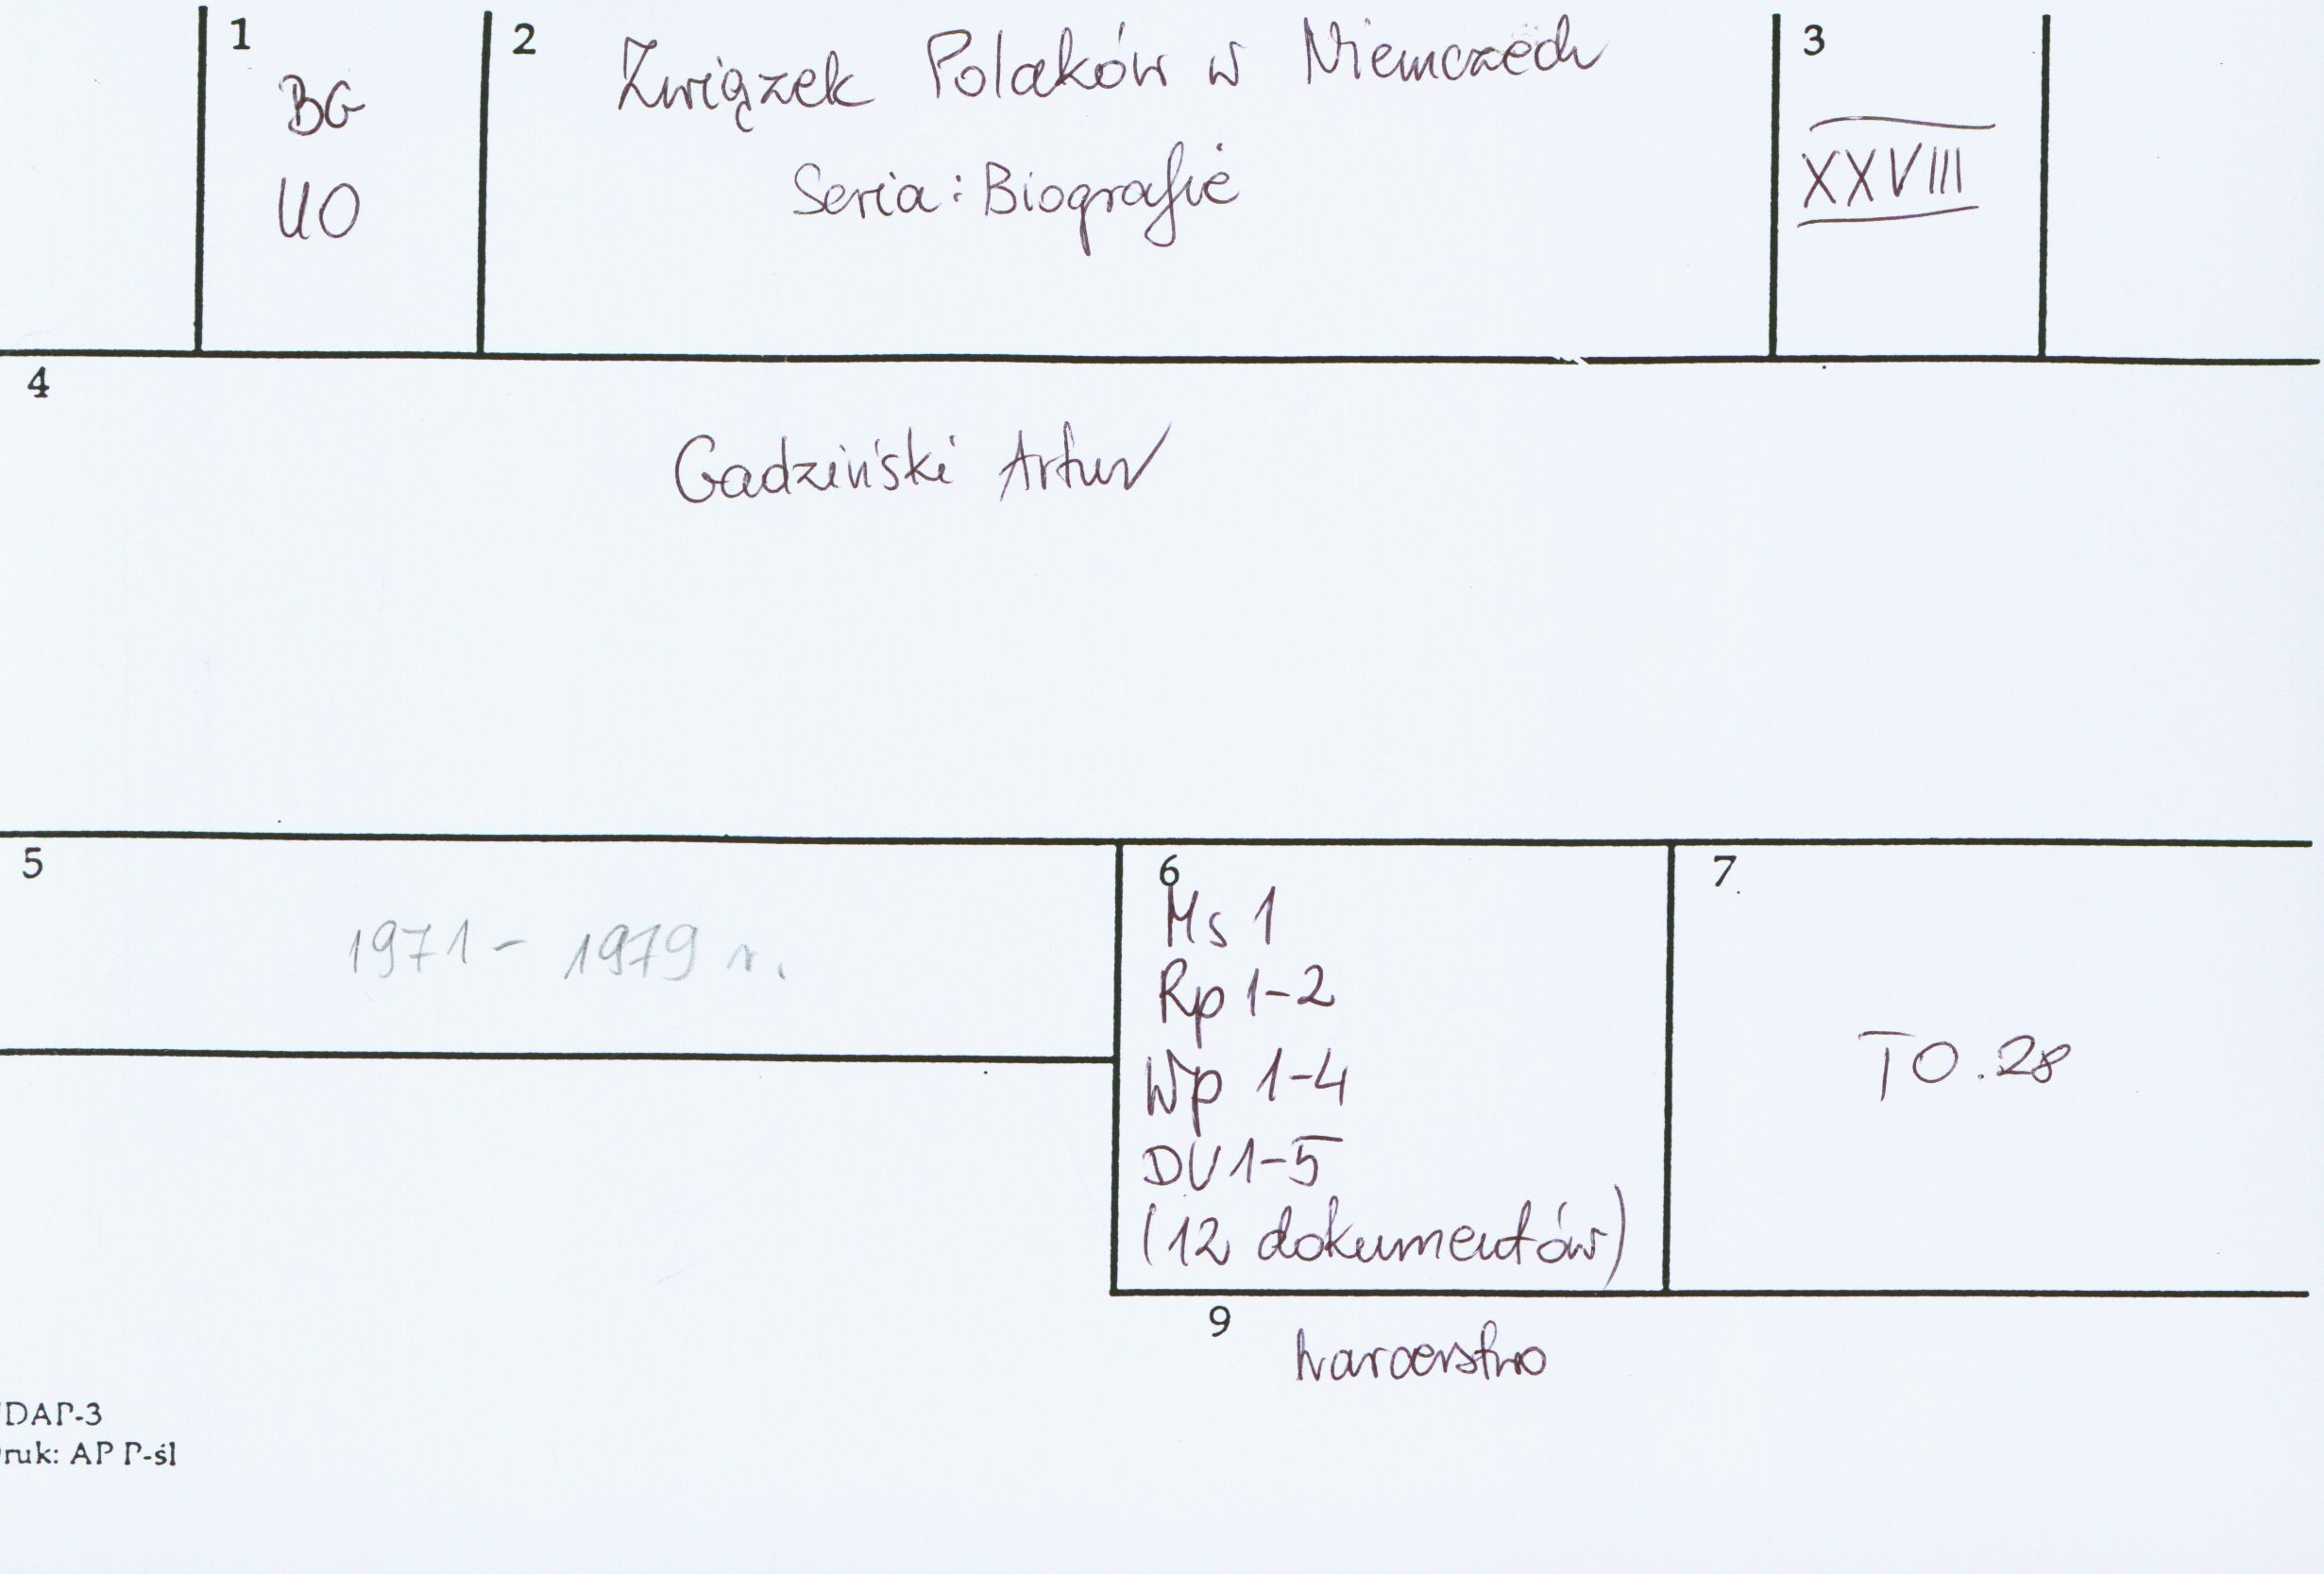 1
BG
UO
2
Związek Polaków w Niemczech
Seria: Biografie
3
XXVIII
4
Gadziński Artur
5
1971 - 1979 r.
6
Ms 1
Rp 1-2
Wp 1-4
DV 1-5
(12 dokumentów)
7
TO.28
9
harcerstwo
DAP-3
ruk: AP P-śl